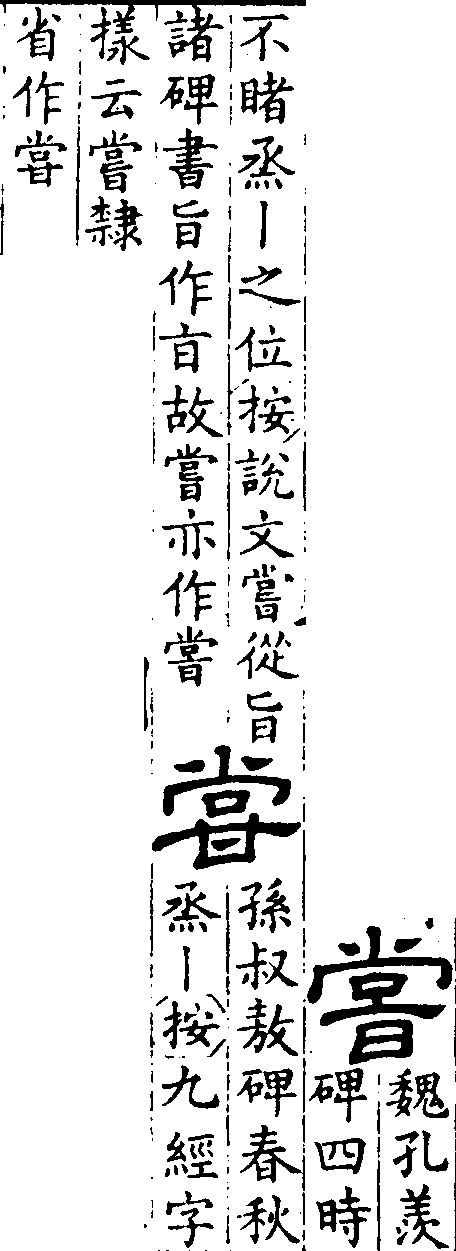 嘗
魏孔羨
碑四時
不睹烝丨之位按說文嘗從旨
諸碑書旨作㫖故嘗亦作嘗
甞
孫叔敖碑春秋
烝丨按九經字
樣云嘗隸
省作甞